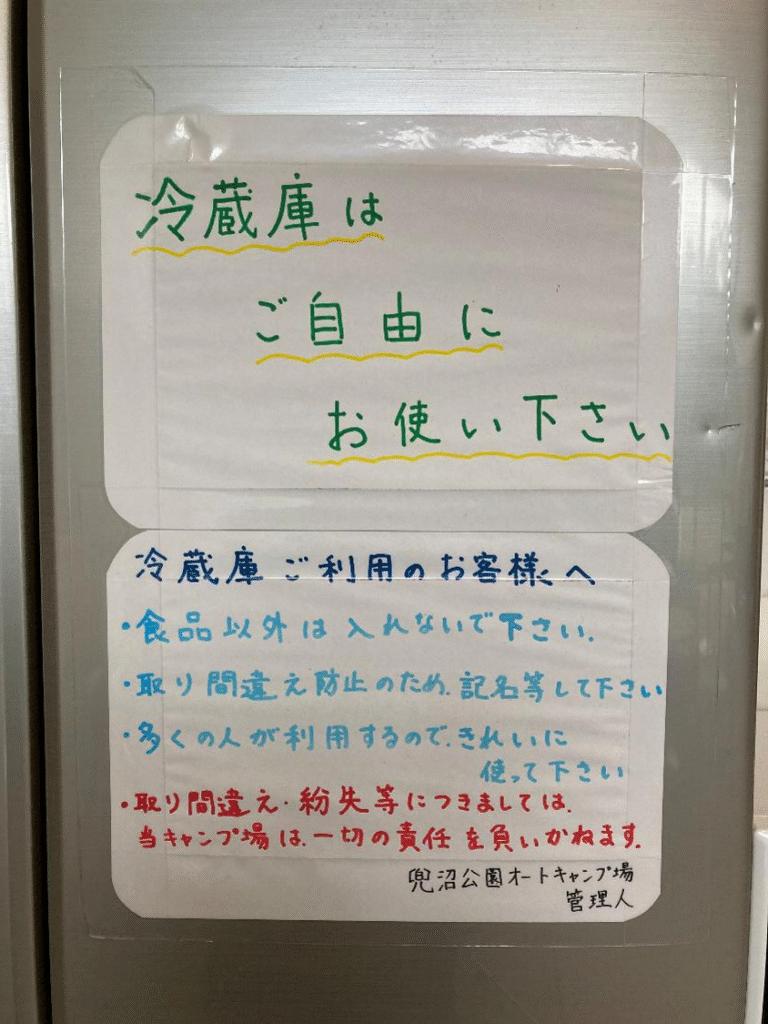 冷蔵庫は
ご自由に
お使い下さい
冷蔵庫ご利用のお客様へ
・食品以外は入れないで下さい.
・取り間違え防止のため、記名等して下さい
・多くの人が利用するので、きれいに
使って下さい
・取り間違え・紛失等につきましては、
当キャンプ場は、一切の責任を負いかねます。
兜沼公園オートキャンプ場
管理人